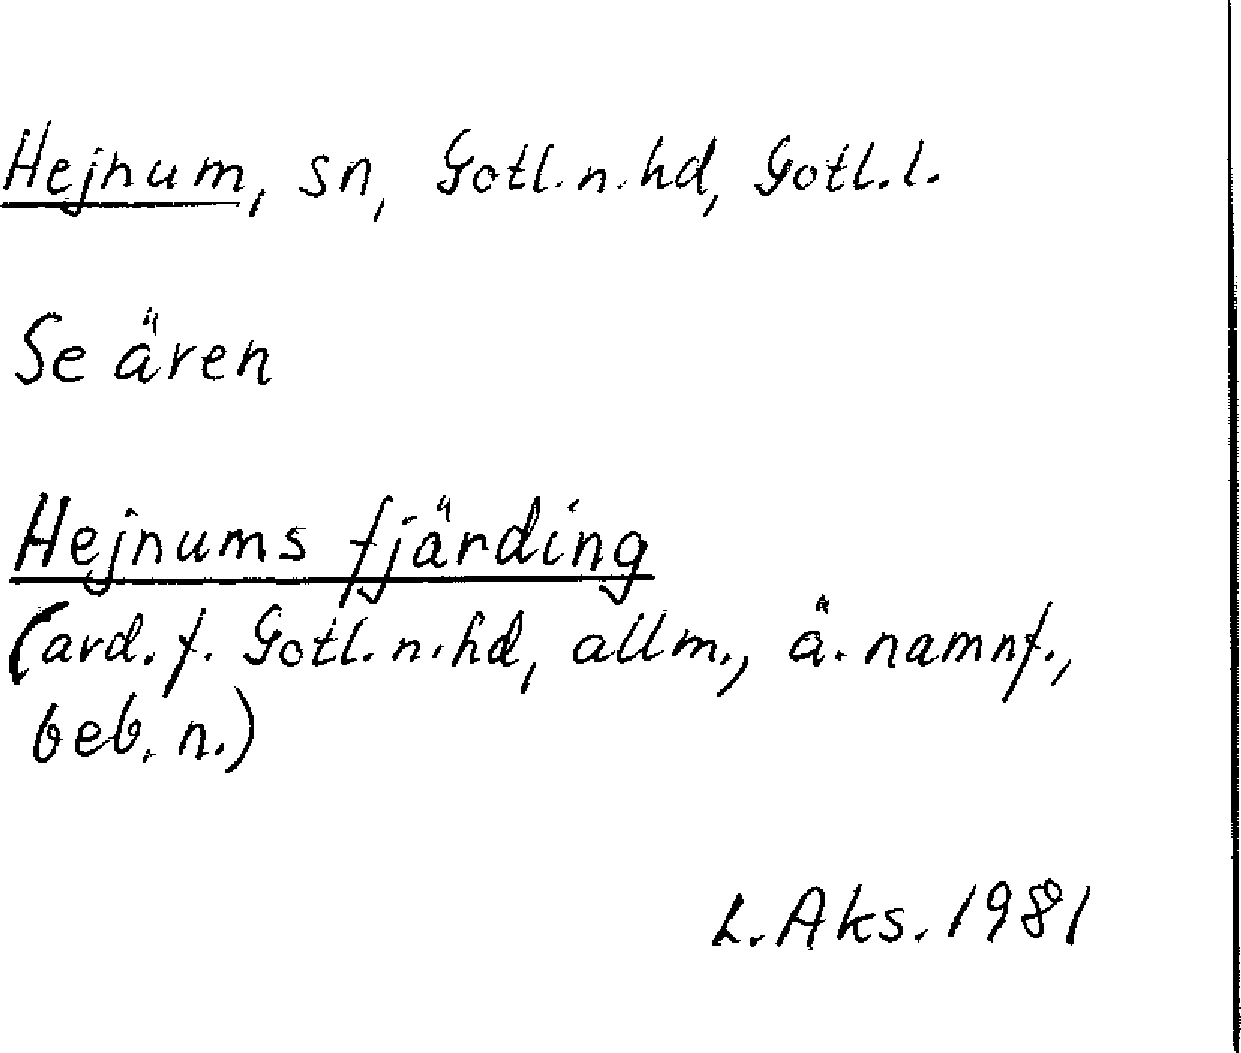 Hejnum, sn, Gotl.n.hd, Gotl.l.
Se ären
Hejnums fjärding
(avd. f. Gotl.n.hd, allm., ä. namnf.,
beb. n.)
L. Aks. 1981